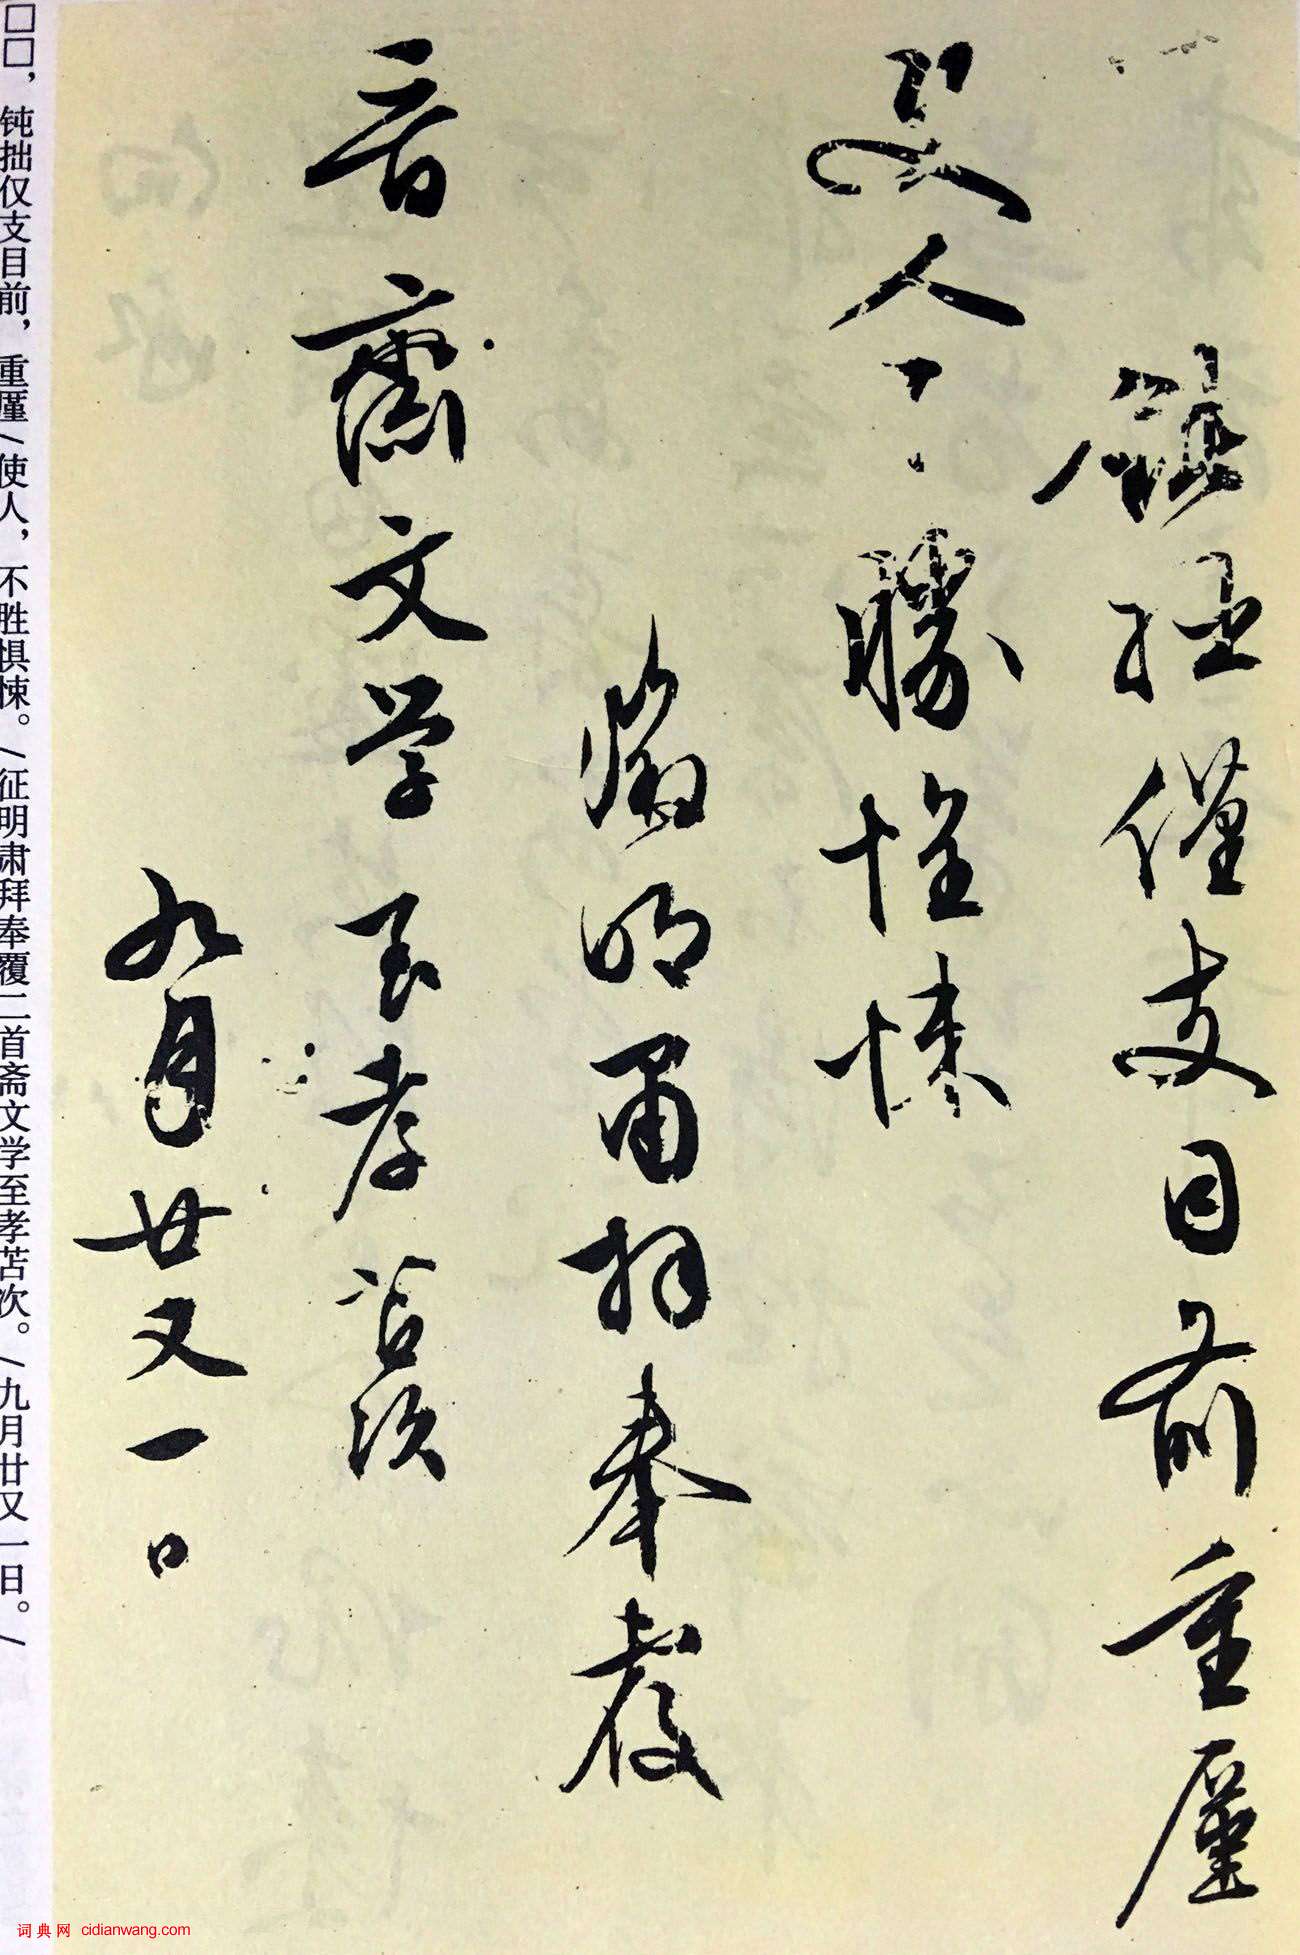 鈍拙僅支目前重廑
使人不勝惟悚
徵明肅拜奉覆
二首齋文學至孝苫次
九月廿又一日
□□，钝拙仅支目前，重廑/使人，不胜惧悚。/征明肃拜奉覆二首斋文学至孝苫次。/九月廿又一日。/
词典网 cidianwang.com